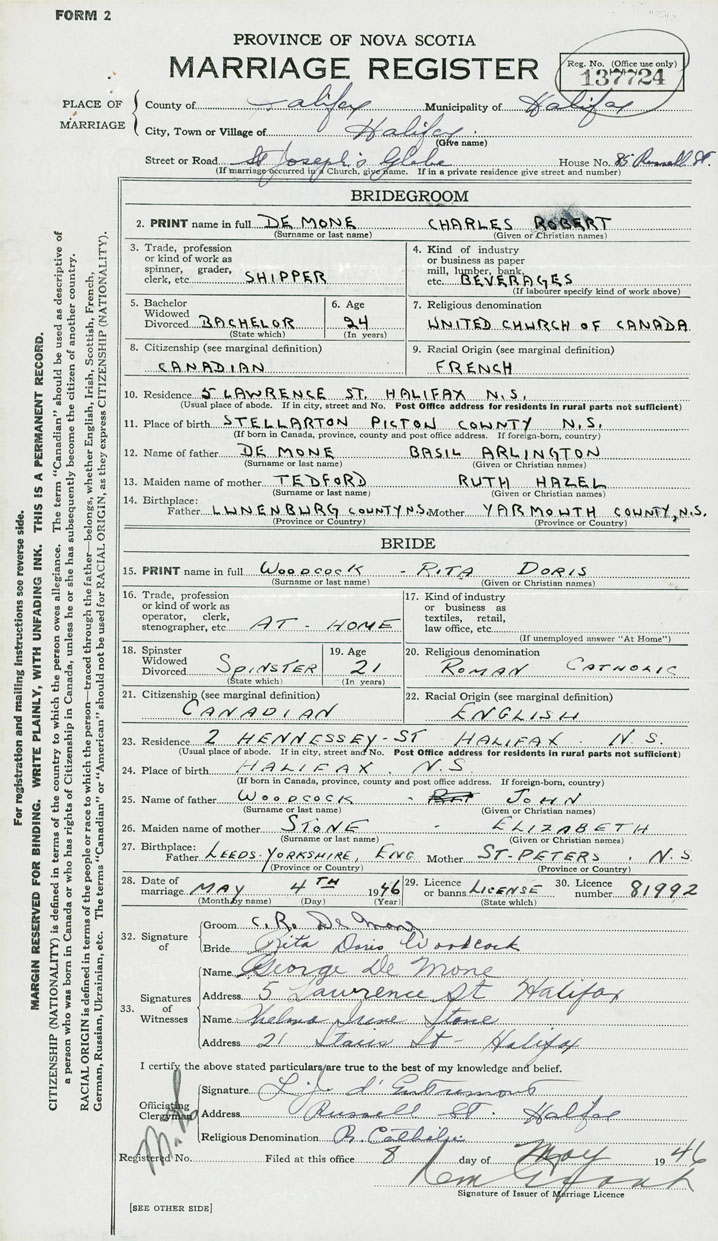 FORM 2
PROVINCE OF NOVA SCOTIA
MARRIAGE REGISTER
Reg. No. (Office use only)
137724
PLACE OF MARRIAGE
County of Halifax Municipality of Halifax
City, Town or Village of Halifax
(Give name)
Street or Road St Joseph's Glebe House No. 85 Russell St.
(If marriage occurred in a Church, give name. If in a private residence give street and number)
BRIDEGROOM
2. PRINT name in full DE MONE CHARLES ROBERT
(Surname or last name) (Given or Christian names)
3. Trade, profession or kind of work as spinner, grader, clerk, etc SHIPPER
4. Kind of industry or business as paper mill, lumber, bank, etc. BEVERAGES
(If labourer specify kind of work above)
5. Bachelor Widowed Divorced BACHELOR
(State which)
6. Age 24
(In years)
7. Religious denomination
UNITED CHURCH OF CANADA
8. Citizenship (see marginal definition)
CANADIAN
9. Racial Origin (see marginal definition)
FRENCH
10. Residence 5 LAWRENCE ST. HALIFAX N.S.
(Usual place of abode. If in city, street and No. Post Office address for residents in rural parts not sufficient)
11. Place of birth STELLARTON PICTON COUNTY N.S.
(If born in Canada, province, county and post office address. If foreign-born, country)
12. Name of father DE MONE BASIL ARLINGTON
(Surname or last name) (Given or Christian names)
13. Maiden name of mother TEDFORD RUTH HAZEL
(Surname or last name) (Given or Christian names)
14. Birthplace:
Father LUNENBURG COUNTY N.S. Mother YARMOUTH COUNTY, N.S.
(Province or Country) (Province or Country)
BRIDE
15. PRINT name in full WOODCOCK - RITA DORIS
(Surname or last name) (Given or Christian names)
16. Trade, profession or kind of work as operator, clerk, stenographer, etc AT-HOME
17. Kind of industry or business as textiles, retail, law office, etc.
(If unemployed answer "At Home")
18. Spinster Widowed Divorced SPINSTER
(State which)
19. Age 21
(In years)
20. Religious denomination
ROMAN CATHOLIC
21. Citizenship (see marginal definition)
CANADIAN
22. Racial Origin (see marginal definition)
ENGLISH
23. Residence 2 HENNESSEY-ST HALIFAX. N.S.
(Usual place of abode. If in city, street and No. Post Office address for residents in rural parts not sufficient)
24. Place of birth HALIFAX. N.S
(If born in Canada, province, county and post office address. If foreign-born, country)
25. Name of father WOODCOCK - JOHN
(Surname or last name) (Given or Christian names)
26. Maiden name of mother STONE - ELIZABETH
(Surname or last name) (Given or Christian names)
27. Birthplace:
Father LEEDS-YORKSHIRE, ENG Mother ST-PETERS. N.S
(Province or Country) (Province or Country)
28. Date of marriage MAY 4TH 1946
(Month by name) (Day) (Year)
29. Licence or banns LICENSE
(State which)
30. Licence number 81992
32. Signature of
Groom C. R. De Mone
Bride Rita Doris Woodcock
33. Signatures of Witnesses
Name George De Mone
Address 5 Lawrence St Halifax
Name Thelma Irene Stone
Address 21 St - Halifax
I certify the above stated particulars are true to the best of my knowledge and belief.
Officiating Clergyman
Signature L. J. d'Entremont
Address Russell St. Halifax
Religious Denomination R. Catholic
Registered No. Filed at this office 8 day of May 1946
Signature of Issuer of Marriage Licence
[SEE OTHER SIDE]
For registration and mailing instructions see reverse side.
MARGIN RESERVED FOR BINDING. WRITE PLAINLY, WITH UNFADING INK. THIS IS A PERMANENT RECORD.
CITIZENSHIP (NATIONALITY) is defined in terms of the country to which the person owes allegiance. The term "Canadian" should be used as descriptive of
a person who was born in Canada or who has rights of Citizenship in Canada, unless he or she has subsequently become the citizen of another country.
RACIAL ORIGIN is defined in terms of the people or race to which the person—traced through the father—belongs, whether English, Irish, Scottish, French,
German, Russian, Ukrainian, etc. The terms "Canadian" or "American" should not be used for RACIAL ORIGIN, as they express CITIZENSHIP (NATIONALITY).